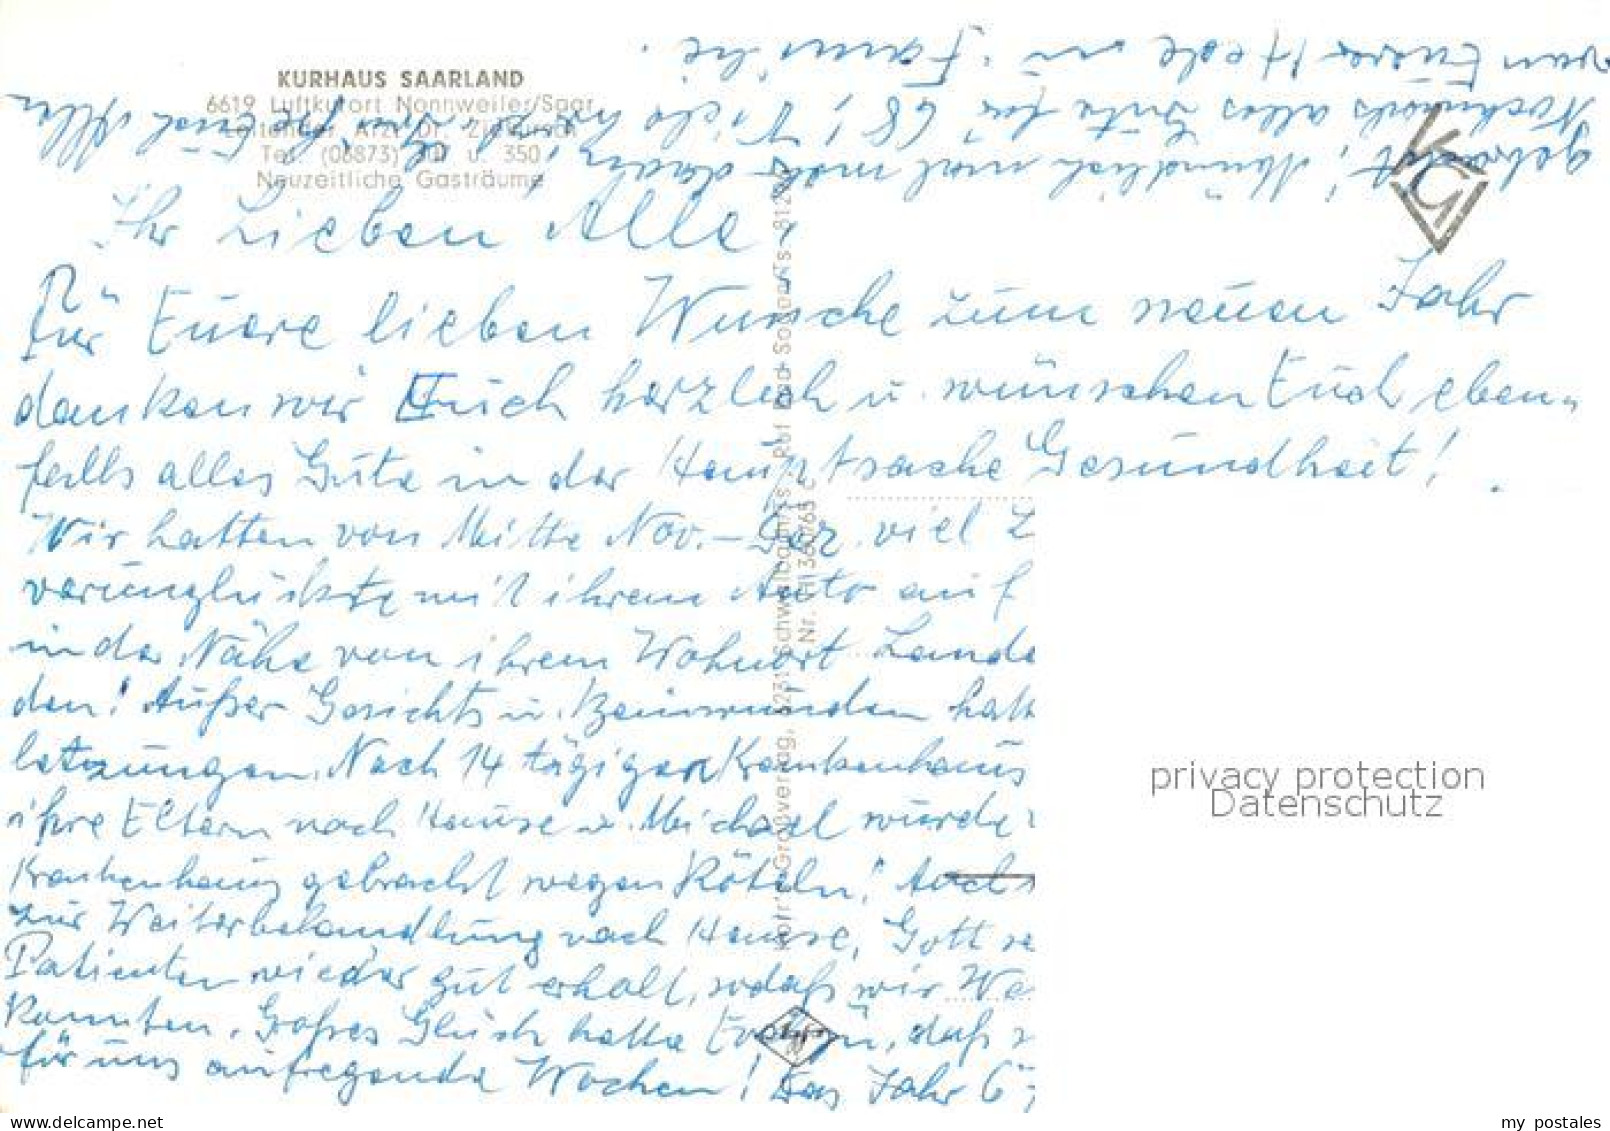 KURHAUS SAARLAND
6619 Luftkurort Nonnweiler/Saar
Leitender Arzt Dr. Zieburschi
Tel. (06873) 301 u. 350
Neuzeitliche Gasträume
Ihr Lieben Alle,
Für Euere lieben Wünsche zum neuen Jahr
danken wir Euch herzlich u. wünschen Euch eben-
falls alles Gute in der Hauptsache Gesundheit!
Wir hatten von Mitte Nov. – Dez. viel
verunglückte mit ihrem Auto auf
in der Nähe von ihrem Wohnort Lande
den! Außer Gesichts u. Beinwunden hatt
letzungen. Nach 14 tägigen Krankenhaus
ihre Eltern nach Hause u. Michael wurde
Krankenhaus gebracht wegen Röteln! Auch
zur Weiterbehandlung nach Hause, Gott se
Patienten wieder gut erholt, sodaß wir We
konnten. Großes Glück hatte, daß
für uns aufregende Wochen! Das Jahr 67
gebracht! Mündlich mal mehr davon!
Nochmals alles Gute für 68! Viele herzl. Grüße Euch Allen
von Euerer Hede u. Familie.
Bad Soden/Ts.
6231 Schwalbach/Ts.
privacy protection
Datenschutz
www.delcampe.net
my postales